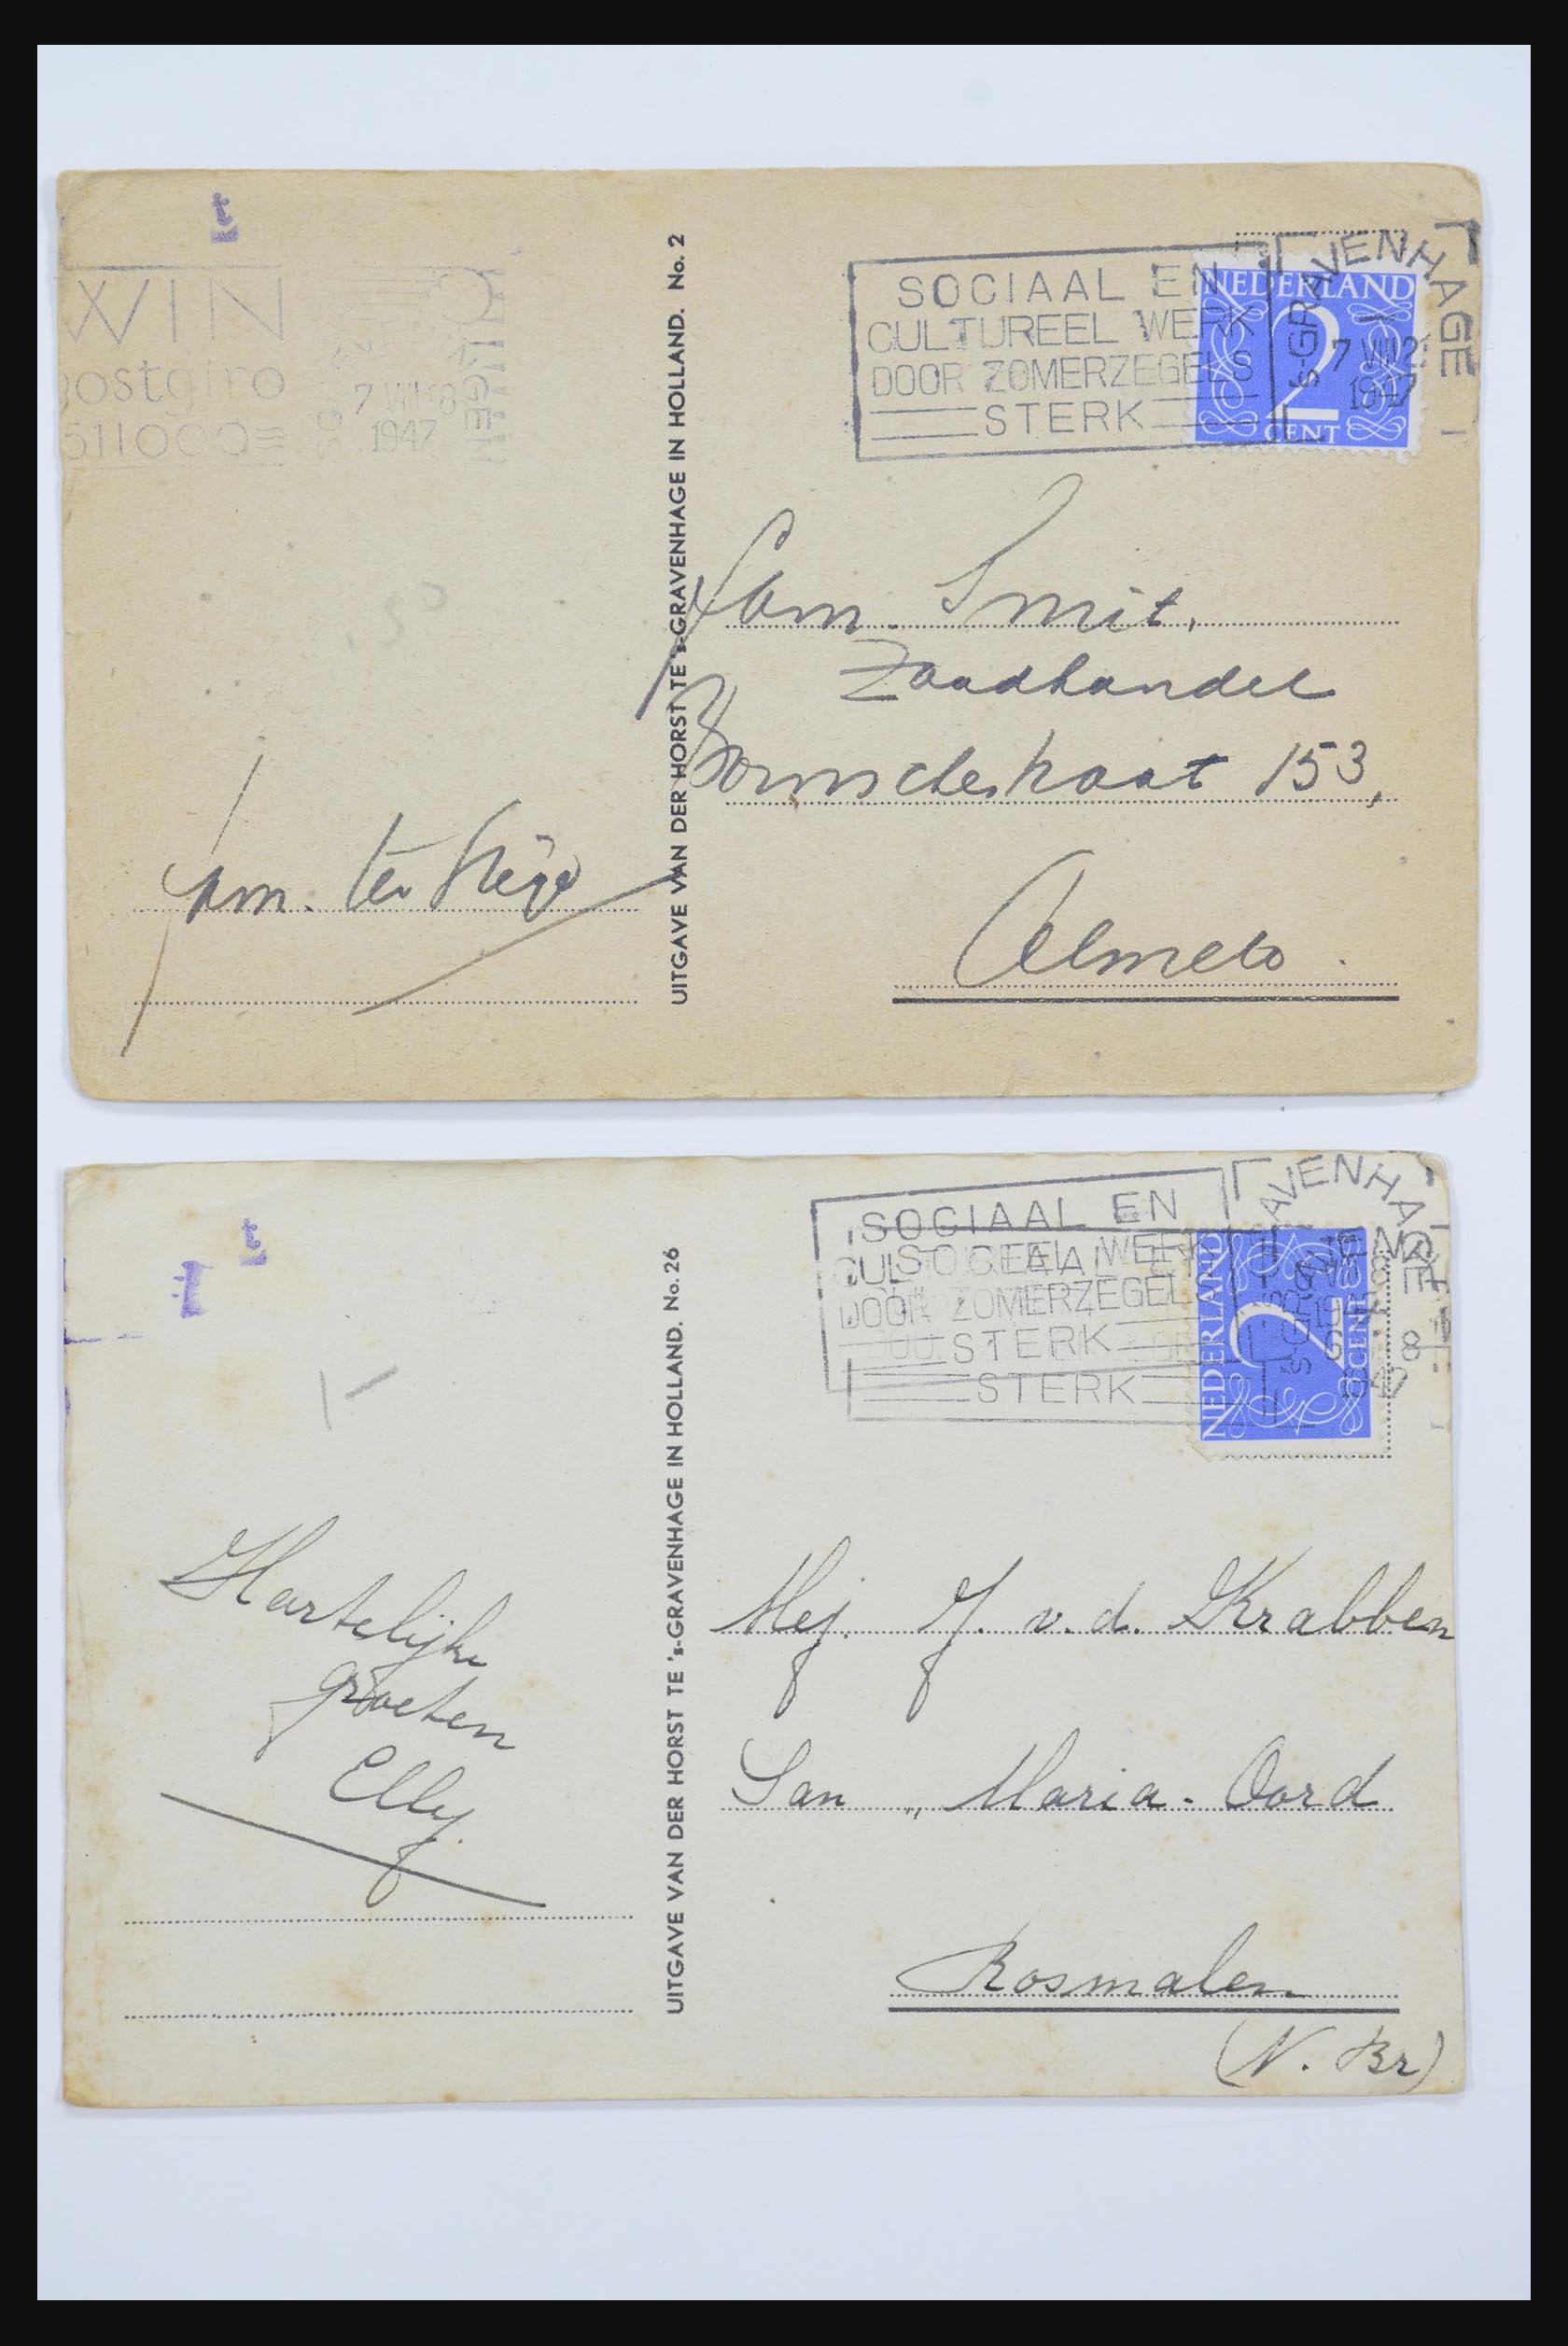 t
WIN
postgiro
511000
7 VIII 18
1947
SOCIAAL EN
CULTUREEL WERK
DOOR ZOMERZEGELS
STERK
's-GRAVENHAGE
7 VIII 2
1947
NEDERLAND
2
CENT
UITGAVE VAN DER HORST TE 's-GRAVENHAGE IN HOLLAND. No. 2
Fam. Smit.
Zaadhandel
153,
Almelo.
Fam. ter
t
SOCIAAL EN
CULTUREEL WERK
DOOR ZOMERZEGELS
STERK
STERK
NEDERLAND
2
CENT
UITGAVE VAN DER HORST TE 's-GRAVENHAGE IN HOLLAND. No. 26
Hartelijke
groeten
Elly.
Mej. J. v.d. Krabben
San „ Maria-Oord
Rosmalen
(N. Br)